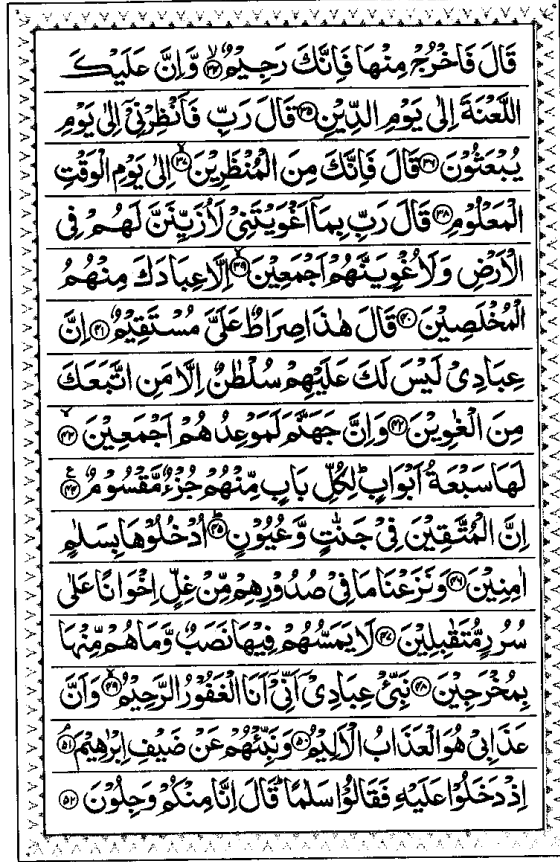 قَالَ فَاخْرُجْ مِنْهَا فَاِنَّكَ رَجِيْمٌ ﴿۳۴﴾ وَّاِنَّ عَلَيْكَ
اللَّعْنَةَ اِلٰى يَوْمِ الدِّيْنِ ﴿۳۵﴾ قَالَ رَبِّ فَاَنْظِرْنِيْٓ اِلٰى يَوْمِ
يُبْعَثُوْنَ ﴿۳۶﴾ قَالَ فَاِنَّكَ مِنَ الْمُنْظَرِيْنَ ﴿۳۷﴾ اِلٰى يَوْمِ الْوَقْتِ
الْمَعْلُوْمِ ﴿۳۸﴾ قَالَ رَبِّ بِمَآ اَغْوَيْتَنِيْ لَاُزَيِّنَنَّ لَهُمْ فِى
الْاَرْضِ وَلَاُغْوِيَنَّهُمْ اَجْمَعِيْنَ ﴿۳۹﴾ اِلَّا عِبَادَكَ مِنْهُمُ
الْمُخْلَصِيْنَ ﴿۴۰﴾ قَالَ هٰذَا صِرَاطٌ عَلَيَّ مُسْتَقِيْمٌ ﴿۴۱﴾ اِنَّ
عِبَادِيْ لَيْسَ لَكَ عَلَيْهِمْ سُلْطٰنٌ اِلَّا مَنِ اتَّبَعَكَ
مِنَ الْغٰوِيْنَ ﴿۴۲﴾ وَاِنَّ جَهَنَّمَ لَمَوْعِدُهُمْ اَجْمَعِيْنَ ﴿۴۳﴾
لَهَا سَبْعَةُ اَبْوَابٍ ؕ لِكُلِّ بَابٍ مِّنْهُمْ جُزْءٌ مَّقْسُوْمٌ ﴿۴۴﴾
اِنَّ الْمُتَّقِيْنَ فِيْ جَنّٰتٍ وَّعُيُوْنٍ ﴿۴۵﴾ اُدْخُلُوْهَا بِسَلٰمٍ
اٰمِنِيْنَ ﴿۴۶﴾ وَنَزَعْنَا مَا فِيْ صُدُوْرِهِمْ مِّنْ غِلٍّ اِخْوَانًا عَلٰى
سُرُرٍ مُّتَقٰبِلِيْنَ ﴿۴۷﴾ لَا يَمَسُّهُمْ فِيْهَا نَصَبٌ وَّمَا هُمْ مِّنْهَا
بِمُخْرَجِيْنَ ﴿۴۸﴾ نَبِّئْ عِبَادِيْٓ اَنِّيْٓ اَنَا الْغَفُوْرُ الرَّحِيْمُ ﴿۴۹﴾ وَاَنَّ
عَذَابِيْ هُوَ الْعَذَابُ الْاَلِيْمُ ﴿۵۰﴾ وَنَبِّئْهُمْ عَنْ ضَيْفِ اِبْرٰهِيْمَ ﴿۵۱﴾
اِذْ دَخَلُوْا عَلَيْهِ فَقَالُوْا سَلٰمًا ؕ قَالَ اِنَّا مِنْكُمْ وَجِلُوْنَ ﴿۵۲﴾